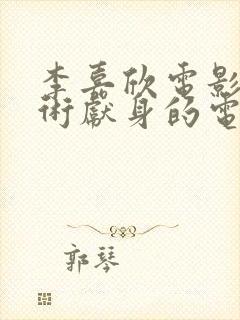 李嘉欣電影
術獻身的電
郭琴